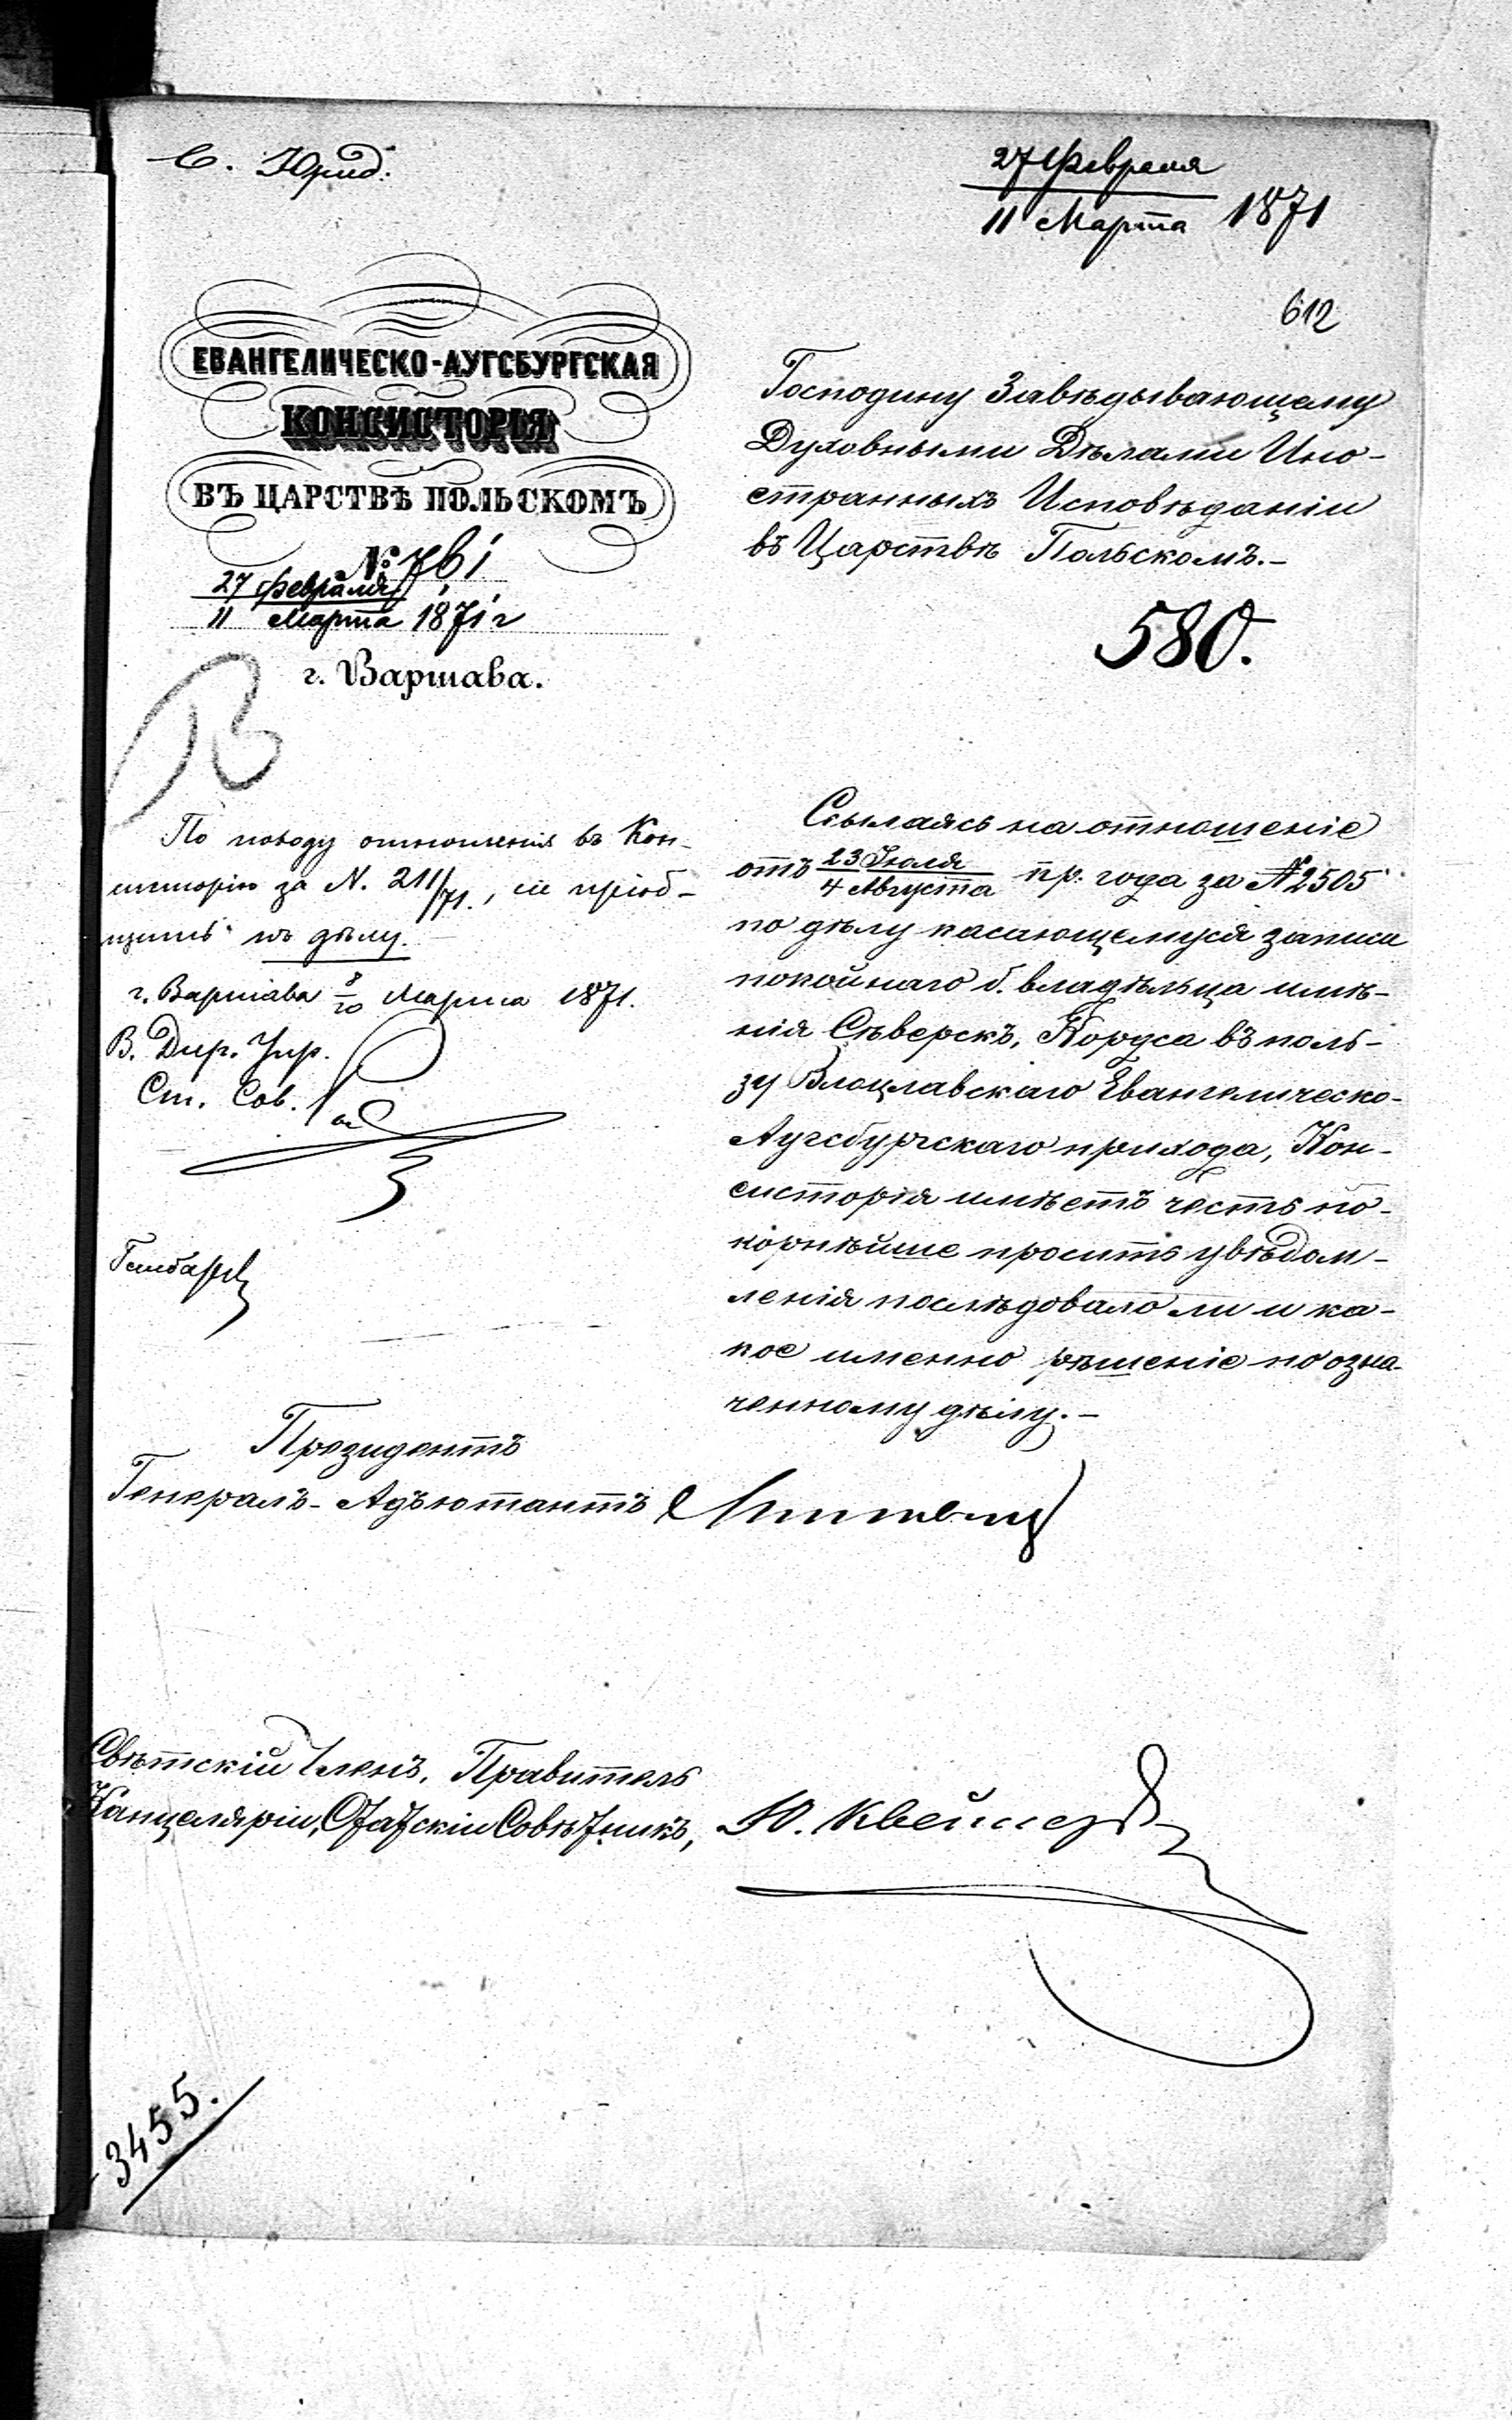 С. Юрид.
27 Февраля
11 Марта 1871
612
ЕВАНГЕЛИЧЕСКО-АУГСБУРГСКАЯ
КОНСИСТОРІЯ
ВЪ ЦАРСТВѢ ПОЛЬСКОМЪ
№ 761
27 Февраля
11 Марта 1871 г
г. Варшава.
Господину Завѣдывающему
Духовными Дѣлами Ино-
странныхъ Исповѣданіи
въ Царствѣ Польскомъ.-
580.
По поводу отношенія въ Кон-
систорію за N. 211/71., сіе пріоб-
щить къ дѣлу.
г. Варшава 8/20 Марта 1871.
В. Дир. Упр.
Ст. Сов.
Ссылаясь на отношеніе
отъ 23 Іюля / 4 Августа пр. года за № 2505
по дѣлу касающемуся записи
покойнаго б. владѣльца имѣ-
нія Сѣверскъ, Кордса въ поль-
зу Влоцлавскаго Евангелическо-
Аугсбургскаго прихода, Кон-
систорія имѣетъ честь по-
корнѣйше просить увѣдом-
ленія послѣдовало ли и ка-
кое именно рѣшеніе по озна-
ченному дѣлу.-
Президентъ
Генералъ-Адъютантъ
Свѣтскій Членъ, Правитель
Канцеляріи, Статскій Совѣтникъ,
3455.